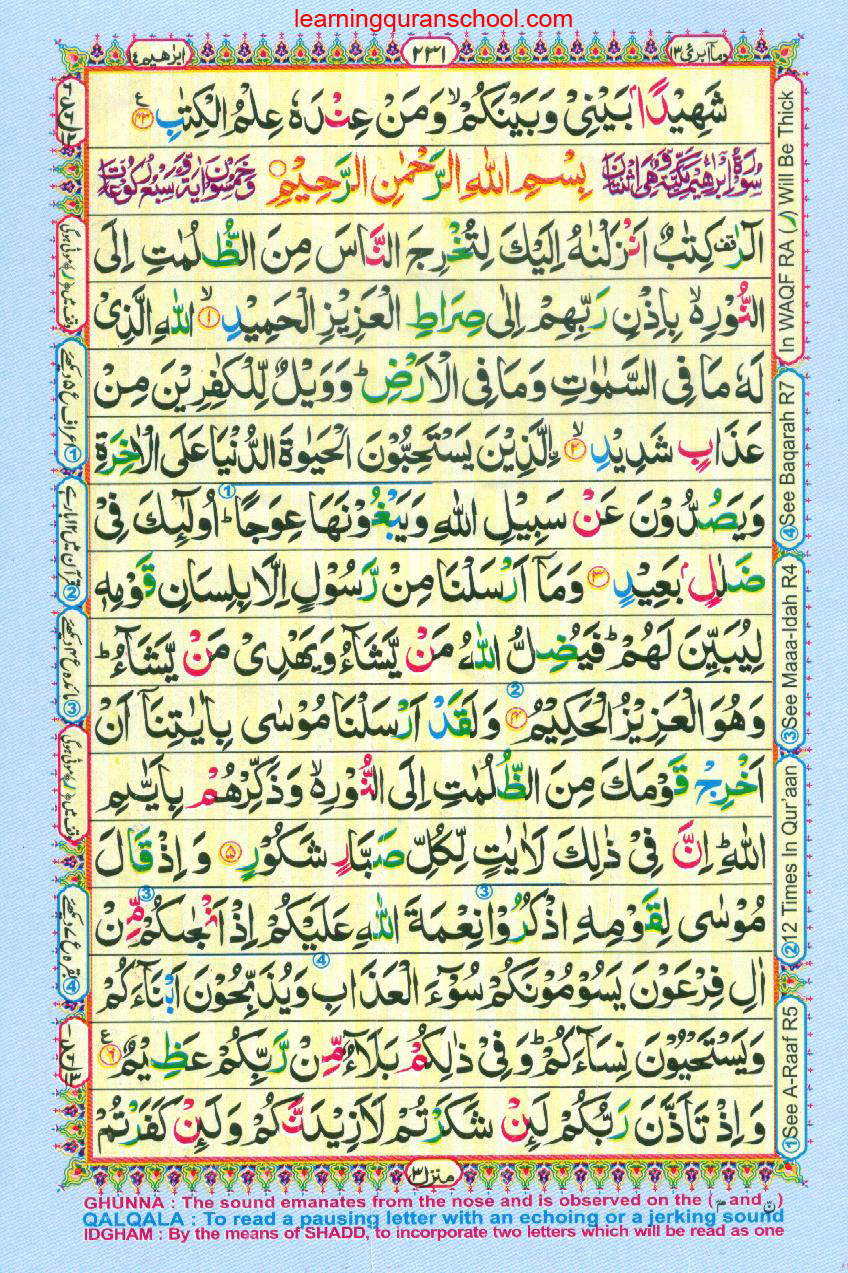 learningquranschool.com
وما ابرئ ١٣
٢٣١
ابرٰهيم ١٤
شَهِيْدًۢا بَيْنِيْ وَبَيْنَكُمْ ۙ وَمَنْ عِنْدَهٗ عِلْمُ الْكِتٰبِ ۝٤٣
بِسْمِ اللهِ الرَّحْمٰنِ الرَّحِيْمِ
الٓرٰ ۚ كِتٰبٌ اَنْزَلْنٰهُ اِلَيْكَ لِتُخْرِجَ النَّاسَ مِنَ الظُّلُمٰتِ اِلَى
النُّوْرِ ۙ بِاِذْنِ رَبِّهِمْ اِلٰى صِرَاطِ الْعَزِيْزِ الْحَمِيْدِ ۙ ۝١ اللهِ الَّذِيْ
لَهٗ مَا فِى السَّمٰوٰتِ وَمَا فِى الْاَرْضِ ؕ وَوَيْلٌ لِّلْكٰفِرِيْنَ مِنْ
عَذَابٍ شَدِيْدِ ۙ ۝٢ اِلَّذِيْنَ يَسْتَحِبُّوْنَ الْحَيٰوةَ الدُّنْيَا عَلَى الْاٰخِرَةِ
وَيَصُدُّوْنَ عَنْ سَبِيْلِ اللهِ وَيَبْغُوْنَهَا عِوَجًا ؕ اُولٰٓئِكَ فِيْ
ضَلٰلٍۢ بَعِيْدٍ ۝٣ وَمَآ اَرْسَلْنَا مِنْ رَّسُوْلٍ اِلَّا بِلِسَانِ قَوْمِهٖ
لِيُبَيِّنَ لَهُمْ ؕ فَيُضِلُّ اللهُ مَنْ يَّشَآءُ وَيَهْدِيْ مَنْ يَّشَآءُ ؕ
وَهُوَ الْعَزِيْزُ الْحَكِيْمُ ۝٤ وَلَقَدْ اَرْسَلْنَا مُوْسٰى بِاٰيٰتِنَآ اَنْ
اَخْرِجْ قَوْمَكَ مِنَ الظُّلُمٰتِ اِلَى النُّوْرِ ۙ وَذَكِّرْهُمْ بِاَيّٰىمِ
اللهِ ؕ اِنَّ فِيْ ذٰلِكَ لَاٰيٰتٍ لِّكُلِّ صَبَّارٍ شَكُوْرٍ ۝٥ وَاِذْ قَالَ
مُوْسٰى لِقَوْمِهِ اذْكُرُوْا نِعْمَةَ اللهِ عَلَيْكُمْ اِذْ اَنْجٰىكُمْ مِّنْ
اٰلِ فِرْعَوْنَ يَسُوْمُوْنَكُمْ سُوْٓءَ الْعَذَابِ وَيُذَبِّحُوْنَ اَبْنَآءَكُمْ
وَيَسْتَحْيُوْنَ نِسَآءَكُمْ ؕ وَفِيْ ذٰلِكُمْ بَلَآءٌ مِّنْ رَّبِّكُمْ عَظِيْمٌ ۝٦
وَاِذْ تَاَذَّنَ رَبُّكُمْ لَئِنْ شَكَرْتُمْ لَاَزِيْدَنَّكُمْ وَلَئِنْ كَفَرْتُمْ
منزل ٣
In WAQF RA (ر) Will Be Thick
④See Baqarah R7
③See Maaa-Idah R4
②12 Times In Qur'aan
①See A-Raaf R5
GHUNNA : The sound emanates from the nose and is observed on the (مّ and نّ)
QALQALA : To read a pausing letter with an echoing or a jerking sound
IDGHAM : By the means of SHADD, to incorporate two letters which will be read as one